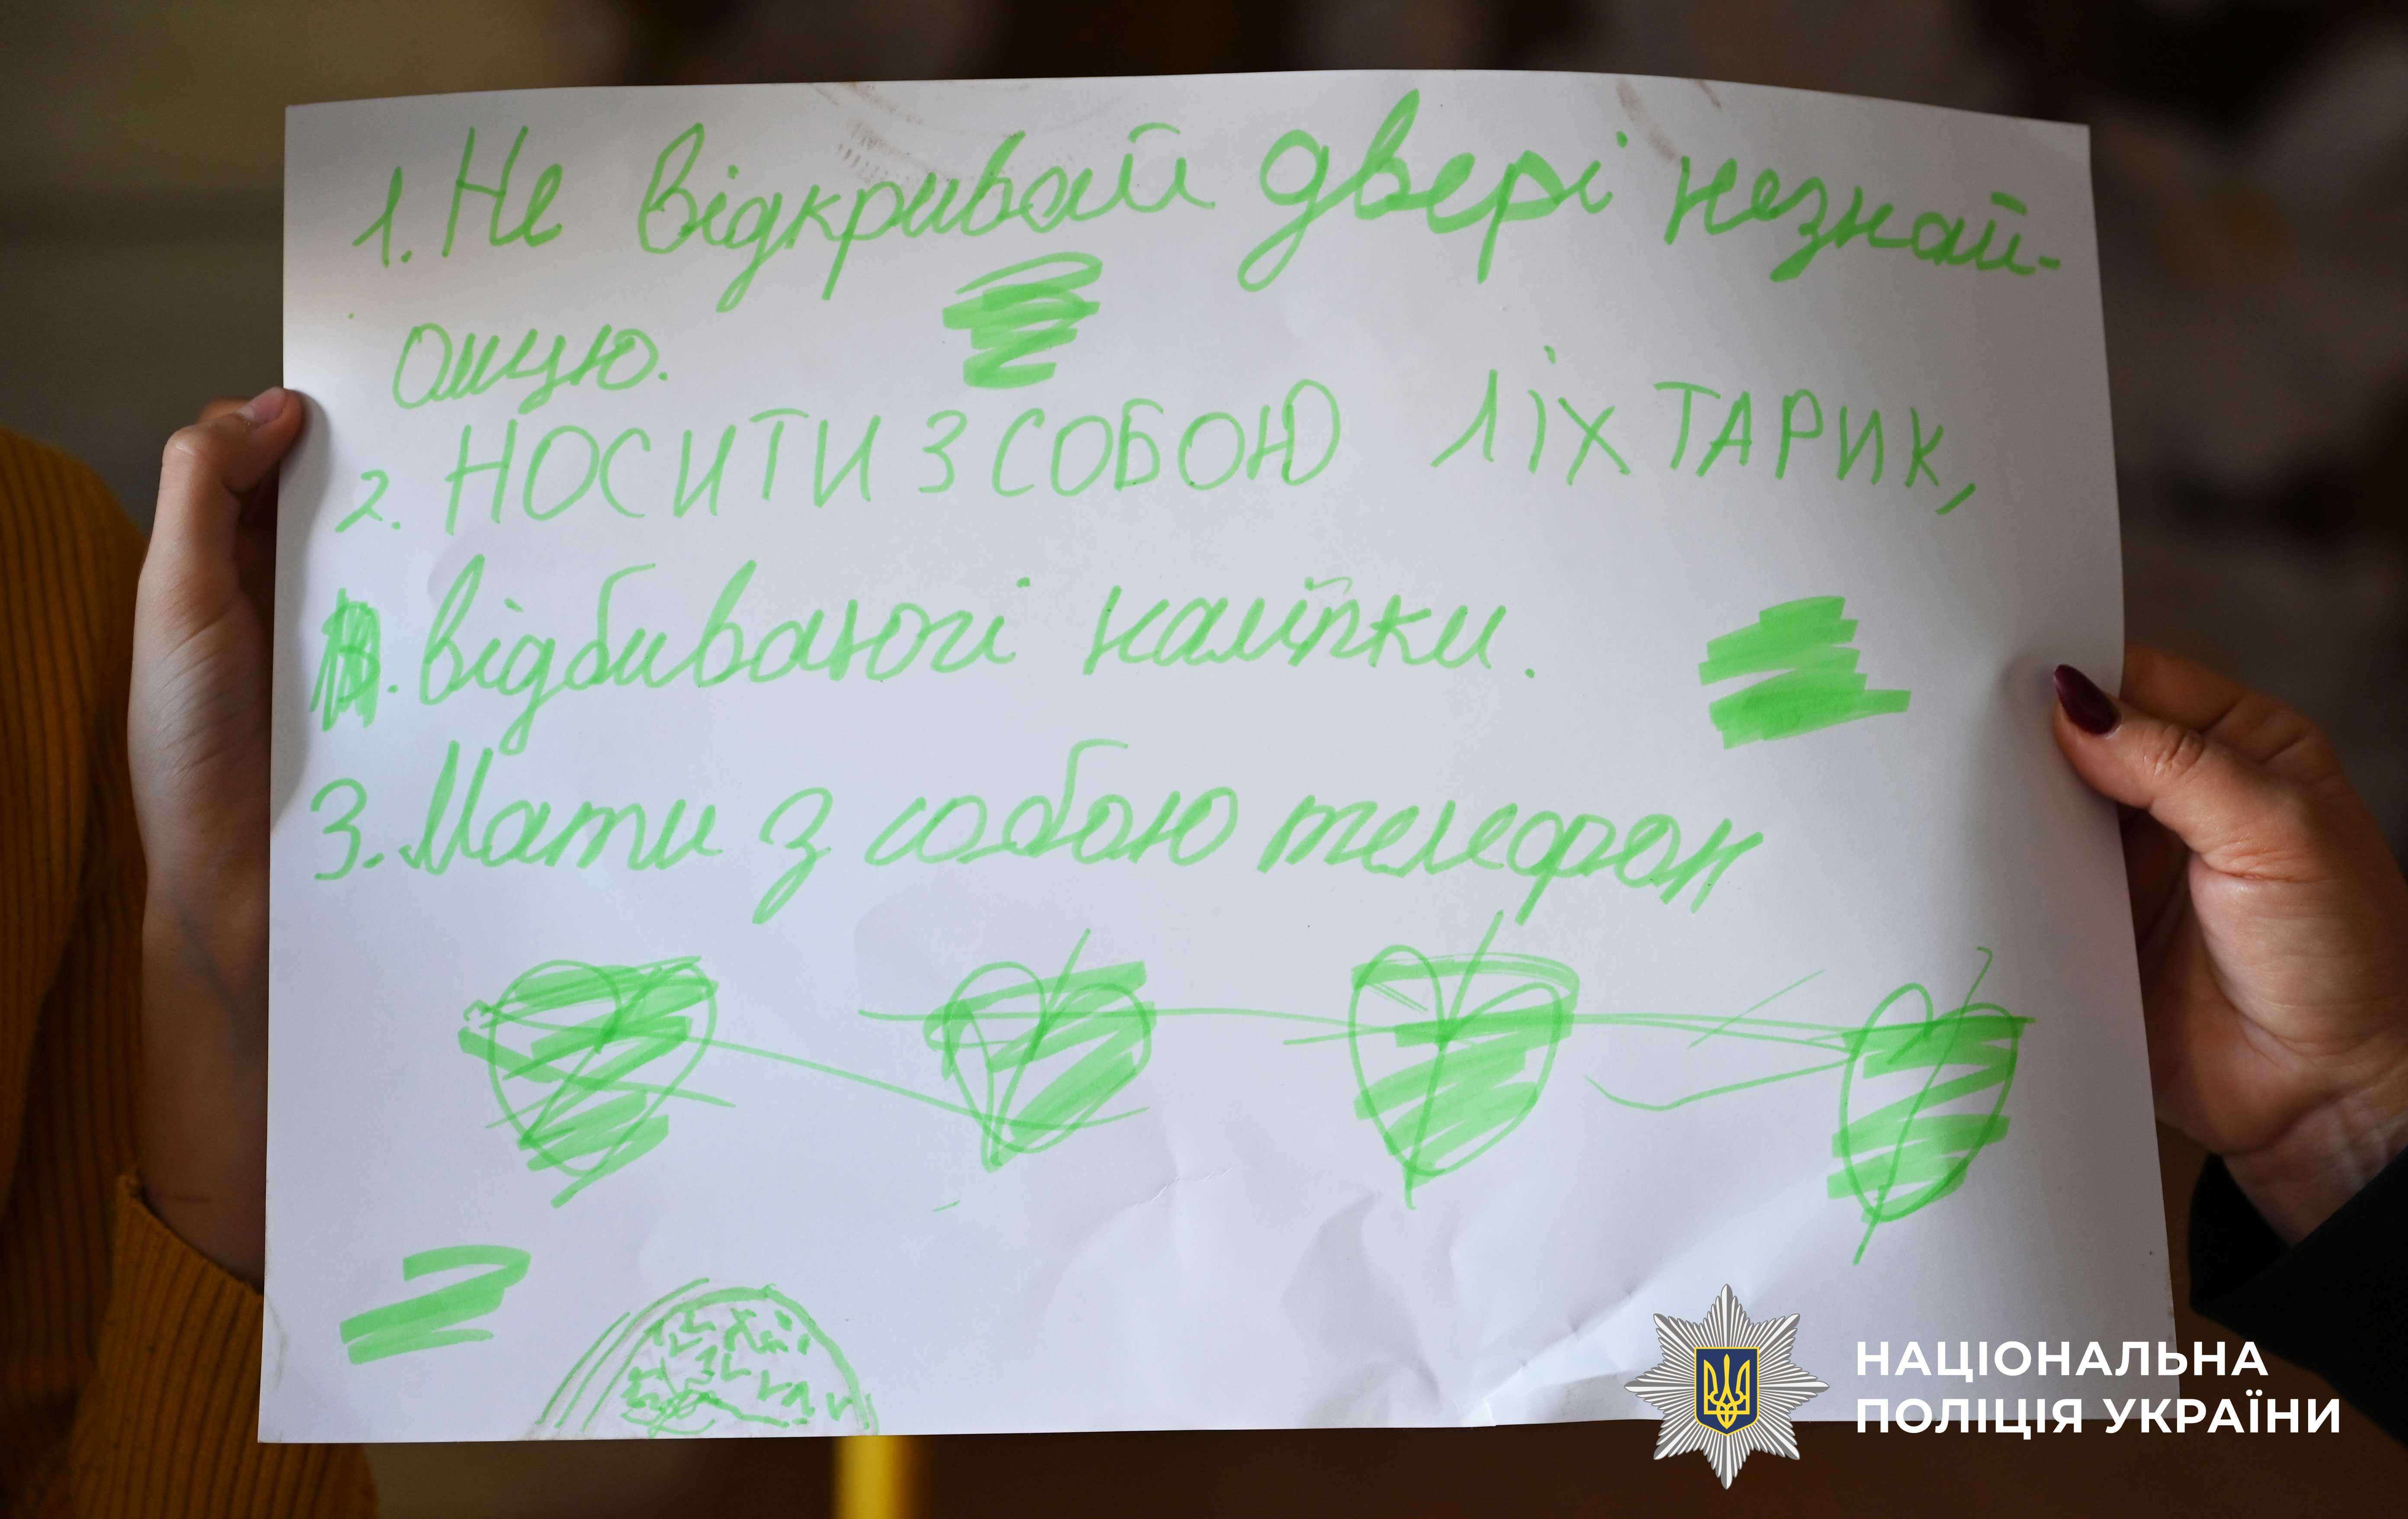 1. Не відкривай двері незнай-
омцю.
2. НОСИТИ З СОБОЮ ЛІХТАРИК,
відбиваючі наліпки.
3. Мати з собою телефон
НАЦІОНАЛЬНА
ПОЛІЦІЯ УКРАЇНИ